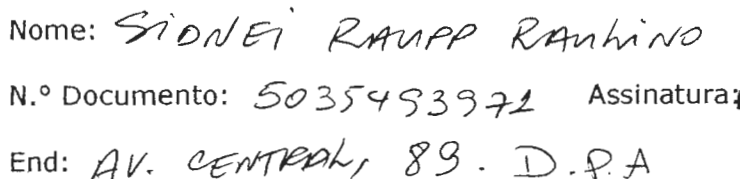 Nome: SiDNEi RAUPP RAULiNO
N.º Documento: 5035493971 Assinatura:
End: AV. CENTRAL, 89. D.P.A